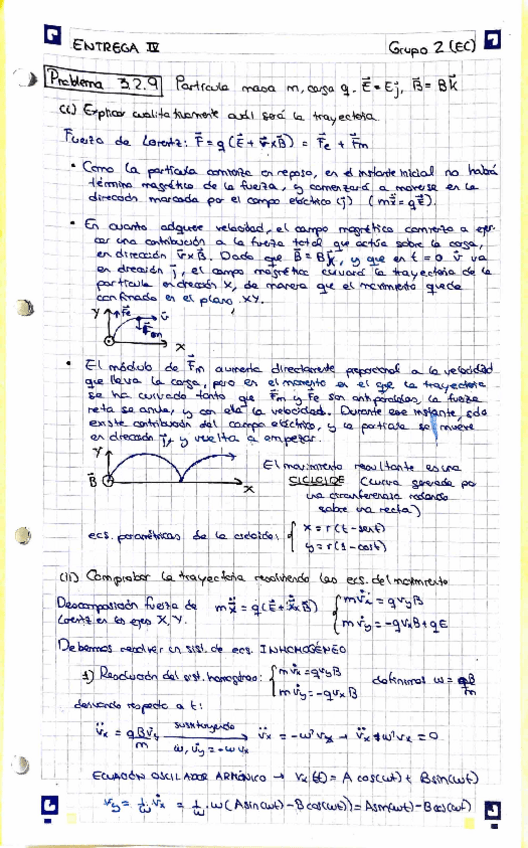 ENTREGA IV
Grupo 2 (EC)
Problema 3.2.9 Partícula masa m, carga q. E⃗ = Ej⃗, B⃗ = Bk⃗
(i) Explicar cualitativamente cuál será la trayectoria.
Fuerza de Lorentz: F⃗ = q(E⃗ + v⃗×B⃗) = F⃗e + F⃗m
• Como la partícula comienza en reposo, en el instante inicial no habrá
término magnético de la fuerza, y comenzará a moverse en la
dirección marcada por el campo eléctrico (j) (mẍ = qE⃗).
• En cuanto adquiere velocidad, el campo magnético comienza a ejer-
cer una contribución a la fuerza total que actúa sobre la carga,
en dirección v⃗×B⃗. Dado que B⃗ = Bk⃗, y que en t=0 v⃗ va
en dirección j⃗, el campo magnético curvará la trayectoria de la
partícula en dirección X, de manera que el movimiento quede
confinado en el plano XY.
Y F⃗e v⃗
F⃗m
X
• El módulo de F⃗m aumenta directamente proporcional a la velocidad
que lleva la carga, pero en el momento en el que la trayectoria
se ha curvado tanto que F⃗m y F⃗e son antiparalelas, la fuerza
neta se anula, y con ella la velocidad. Durante ese instante, solo
existe contribución del campo eléctrico, y la partícula se mueve
en dirección j⃗, y vuelta a empezar.
Y
B⃗
X
El movimiento resultante es una
CICLOIDE (curva generada por
una circunferencia rodando
sobre una recta)
ecs. paramétricas de la cicloide: { x = r(t - sent)
y = r(1 - cost)
(ii) Comprobar la trayectoria resolviendo las ecs. del movimiento
Descomposición fuerza de
Lorentz en los ejes X, Y.
mẍ⃗ = q(E⃗ + ẋ⃗×B⃗) { mv̇x = qvyB
mv̇y = -qvxB + qE
Debemos resolver un sist. de ecs. INHOMOGÉNEO
1) Resolución del sist. homogéneo: { mv̇x = qvyB
mv̇y = -qvxB
definimos ω = qB/m
derivando respecto a t:
v̈x = qBv̇y/m sustituyendo ω, v̇y = -ωvx → v̈x = -ω²vx → v̈x + ω²vx = 0
ECUACIÓN OSCILADOR ARMÓNICO → vx(t) = A cos(ωt) + B sin(ωt)
vy = 1/ω v̇x = 1/ω · ω(A sin(ωt) - B cos(ωt)) = A sin(ωt) - B cos(ωt)